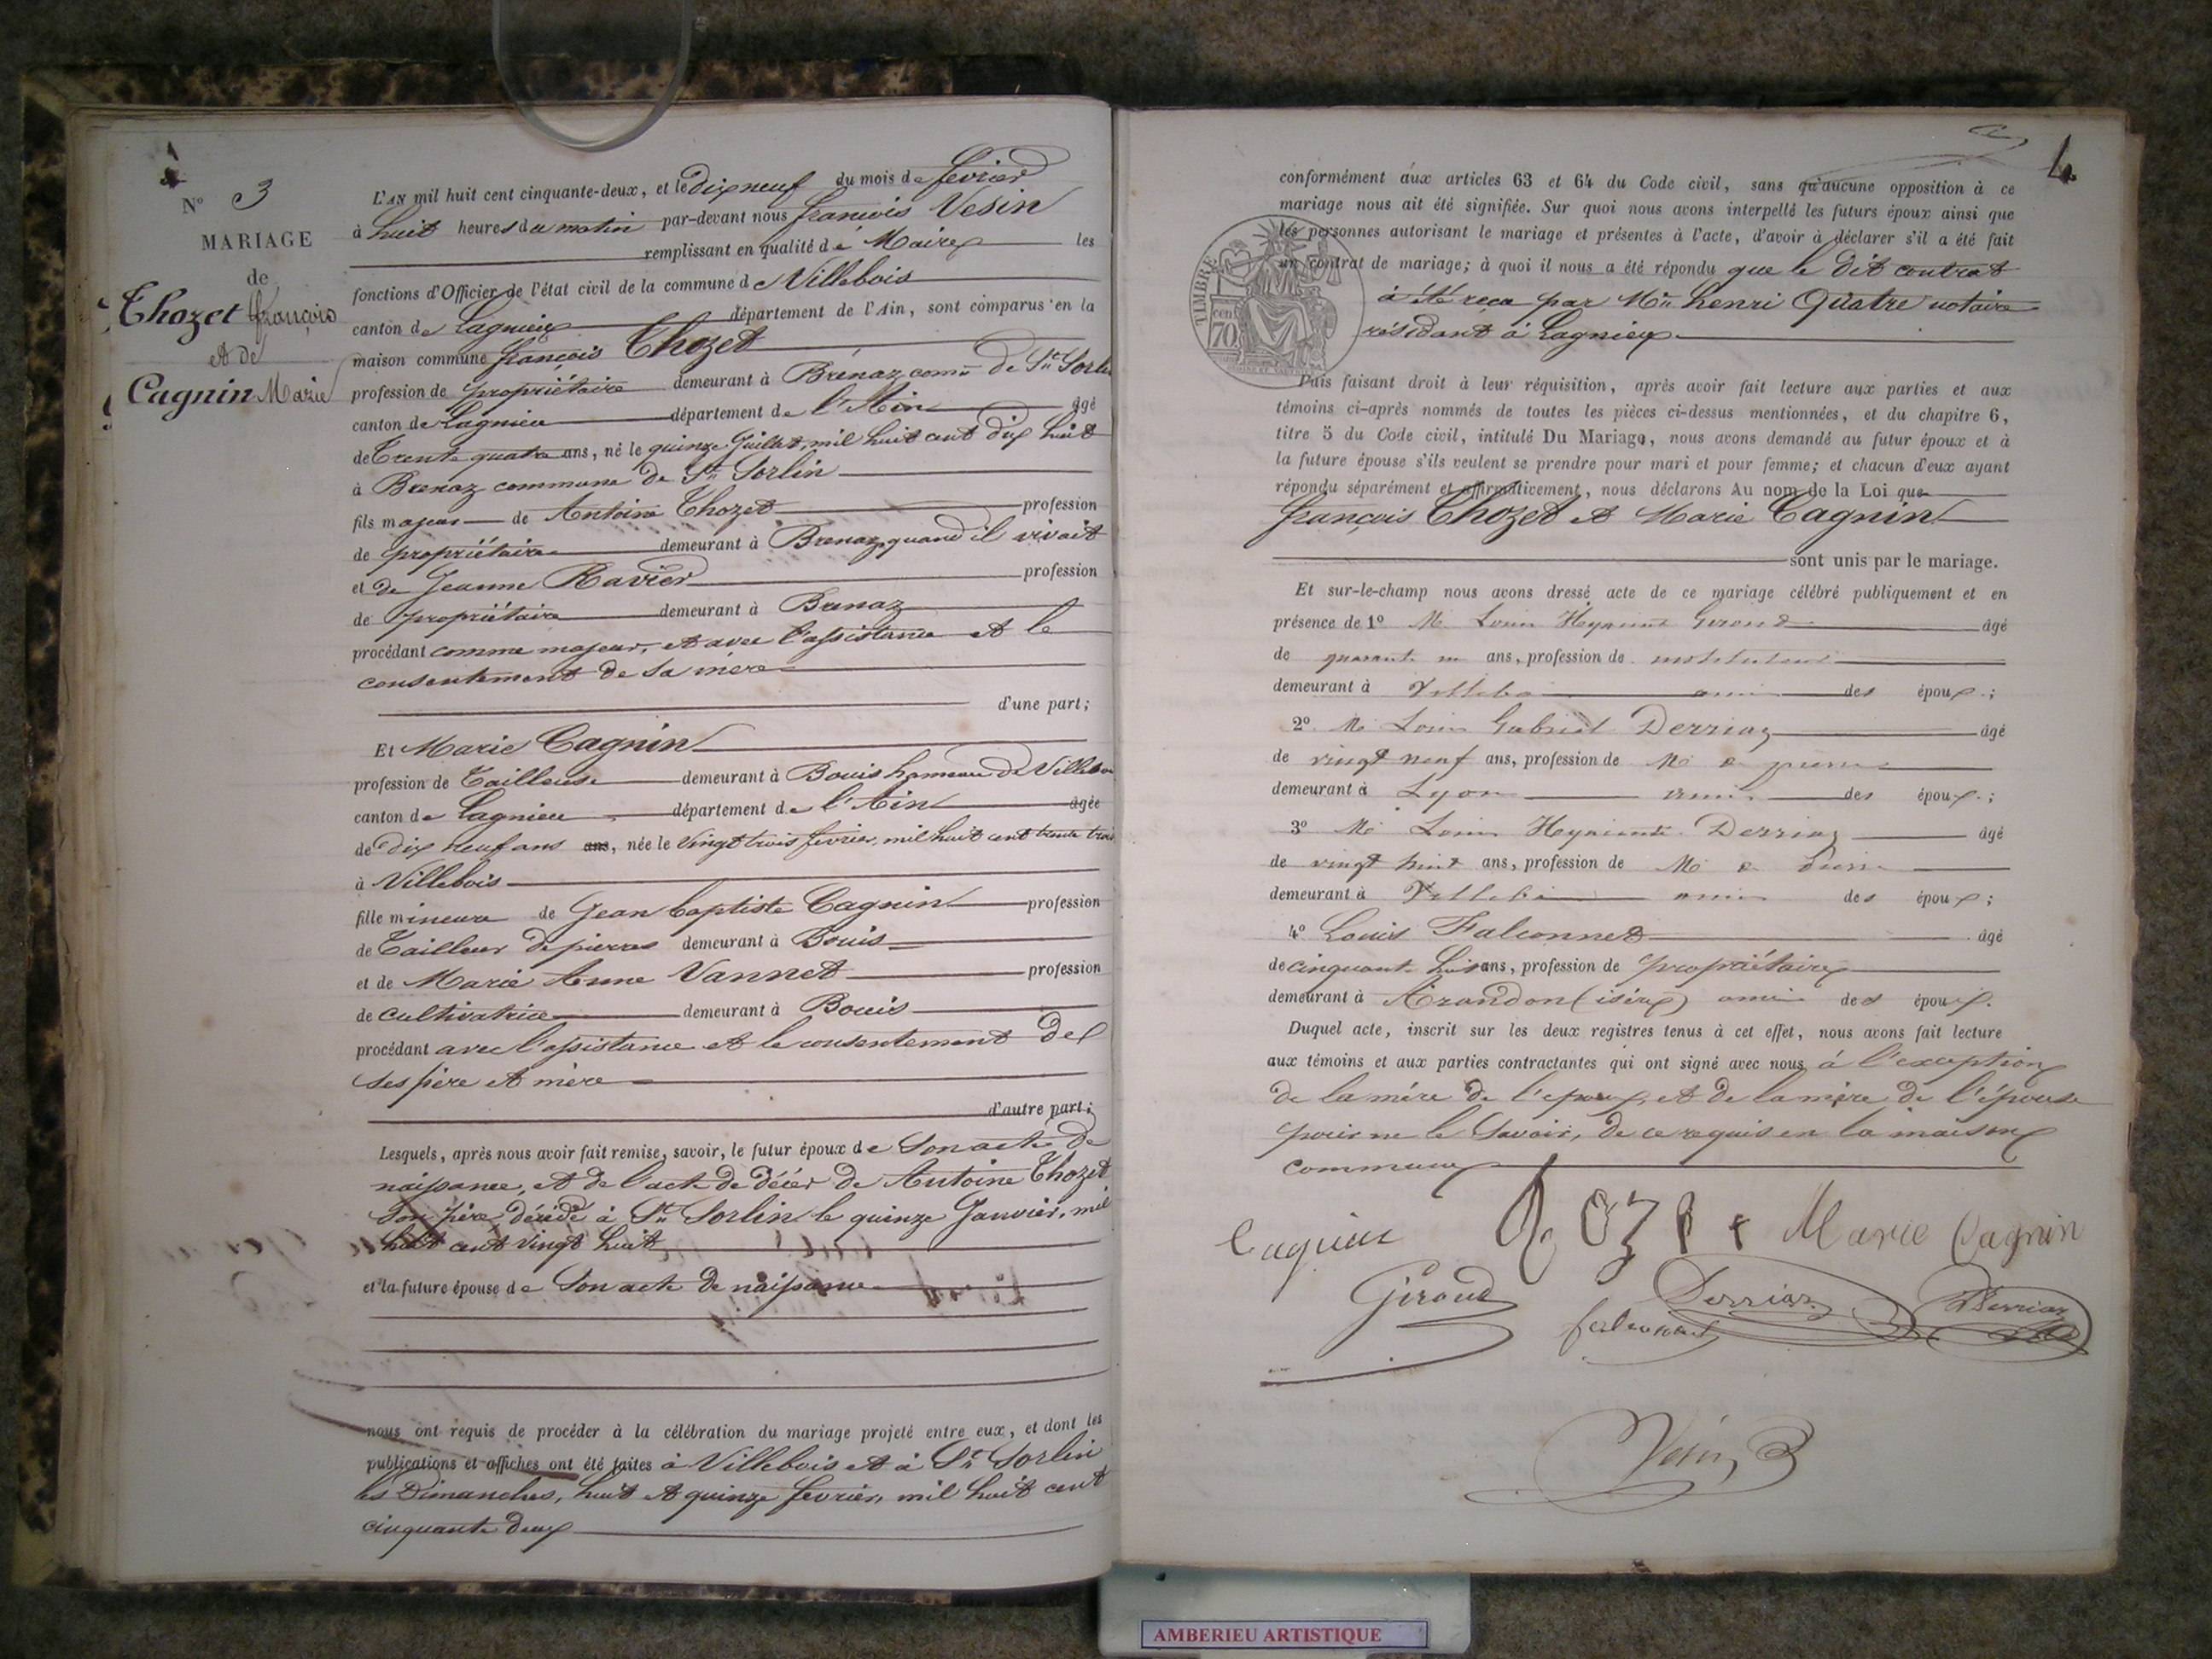 N° 3
MARIAGE
de
Thozet François
et de
Cagnin Marie
L'AN mil huit cent cinquante-deux, et le dix neuf du mois de fevrier
à huit heures du matin par-devant nous francois Vesin
remplissant en qualité de Maire les
fonctions d'Officier de l'état civil de la commune de Villebois
canton de Lagnieu département de l'Ain, sont comparus en la
maison commune françois Thozet
profession de propriétaire demeurant à Brénaz comne de St Sorlin
canton de Lagnieu département de l'Ain âgé
de Trente quatre ans, né le quinze Juillet, mil huit cent dix huit
à Brenaz commune de St Sorlin
fils majeur de Antoine Thozet profession
de propriétaire demeurant à Brenaz, quand il vivait
et de Jeanne Ravier profession
de propriétaire demeurant à Brenaz
procédant comme majeur, et avec l'assistance et le
consentement de sa mère
d'une part;
Et Marie Cagnin
profession de Tailleuse demeurant à Bouis hameau de Villebois
canton de Lagnieu département de l'Ain âgée
de dix neuf ans ans, née le vingt trois fevrier, mil huit cent trente trois
à Villebois
fille mineure de Jean Baptiste Cagnin profession
de Tailleur de pierres demeurant à Bouis
et de Marie Anne Vannet profession
de cultivatrice demeurant à Bouis
procédant avec l'assistance et le consentement de
ses père et mère
d'autre part;
Lesquels, après nous avoir fait remise, savoir, le futur époux de son acte de
naissance, et de l'acte de décès de Antoine Thozet
son père, décédé à St Sorlin le quinze Janvier, mil
huit cent vingt huit
et la future épouse de son acte de naissance
nous ont requis de procéder à la célébration du mariage projeté entre eux, et dont les
publications et affiches ont été faites à Villebois et à St Sorlin
les Dimanches, huit et quinze fevrier, mil huit cent
cinquante deux
4
conformément aux articles 63 et 64 du Code civil, sans qu'aucune opposition à ce
mariage nous ait été signifiée. Sur quoi nous avons interpellé les futurs époux ainsi que
les personnes autorisant le mariage et présentes à l'acte, d'avoir à déclarer s'il a été fait
un contrat de mariage; à quoi il nous a été répondu que le dit contrat
à été reçu par Me henri Quatre notaire
résidant à Lagnieu
TIMBRE
70 cent
Puis faisant droit à leur réquisition, après avoir fait lecture aux parties et aux
témoins ci-après nommés de toutes les pièces ci-dessus mentionnées, et du chapitre 6,
titre 5 du Code civil, intitulé Du Mariage, nous avons demandé au futur époux et à
la future épouse s'ils veulent se prendre pour mari et pour femme; et chacun d'eux ayant
répondu séparément et affirmativement, nous déclarons Au nom de la Loi que
françois Thozet et Marie Cagnin
sont unis par le mariage.
Et sur-le-champ nous avons dressé acte de ce mariage célébré publiquement et en
présence de 1° M. Louis Hyacinte Giroud âgé
de quarante un ans, profession de instituteur
demeurant à Villebois ami des époux;
2° M. Louis Gabriel Derriaz âgé
de vingt neuf ans, profession de Md de pierres
demeurant à Lyon ami des époux;
3° M. Louis Hyacinte Derriaz âgé
de vingt huit ans, profession de Md de
demeurant à Villebois ami des époux;
4° Louis Falconnet âgé
de cinquante huit ans, profession de propriétaire
demeurant à Arandon (isère) ami des époux.
Duquel acte, inscrit sur les deux registres tenus à cet effet, nous avons fait lecture
aux témoins et aux parties contractantes qui ont signé avec nous, à l'exception
de la mère de l'époux, et de la mère de l'épouse
pour ne le savoir, de ce requis en la maison
commune
Cagnin Marie Cagnin
Giroud falconnet Derriaz Derriaz
Vesin
AMBERIEU ARTISTIQUE